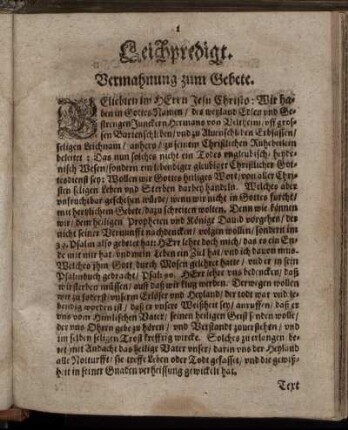 1
Leichpredigt.
Vermahnung zum Gebete.
GEliebten im HErrn Jesu Christo: Wir ha-
ben in Gottes Namen / des weyland Edlen und Ge-
strengen Junckern Hermans von Veltheim / uff gros-
sen Bartenschleben / und zu Alvenschleben Erbsassen /
seligen Leichnam / anhero / zu seinem Christlichen Ruhebetlein
beleitet: Das nun solches nicht ein Todes ungleubisch / heyde-
nisch Wesen / sondern ein lebendiger gleubiger Christlicher Got-
tesdienst sey: Wollen wir Gottes heiliges Wort / von aller Chri-
sten seligen Leben und Sterben darbey handeln. Welches aber
unfruchtbar geschehen würde / wenn wir nicht in Gottes furcht /
mit hertzlichem Gebete / dazu schreiten wolten. Denn wie können
wir / dem heiligen Propheten und Könige David vorgehen / der
nicht seiner Vernunfft nachdencken / volgen wollen / sondern im
39. Psalm also gebetet hat: HErr lehre doch mich / das es ein En-
de mit mir hat / und mein Leben ein Ziel hat / und ich davon mus.
Welches ihm Gott durch Mosen gelehret hatte / und er in sein
Psalmbuch gebracht / Psal. 90. HErr lehre uns bedencken / daß
wir sterben müssen / auff daß wir klug werden. Derwegen wollen
wir zu foderst / unsern Erlöser und Heyland / der todt war und je-
bendig worden ist / daß er unser Weißheit sey / anruffen / daß er
uns vom Himlischen Vater / seinen heiligen Geist senden wolle /
der uns Ohren gebe zu hören / und Verstandt zuverstehen / und
im selben seligen Trost krefftig wircke. Solches zu erlangen: be-
tet mit Andacht das heilige Vater unser / darin uns der Heyland
alle Notturfft / sie treffe Leben oder Todt gefasset / und die gewiß-
heit in seiner Gnaden verheissung gewickelt hat.
Text